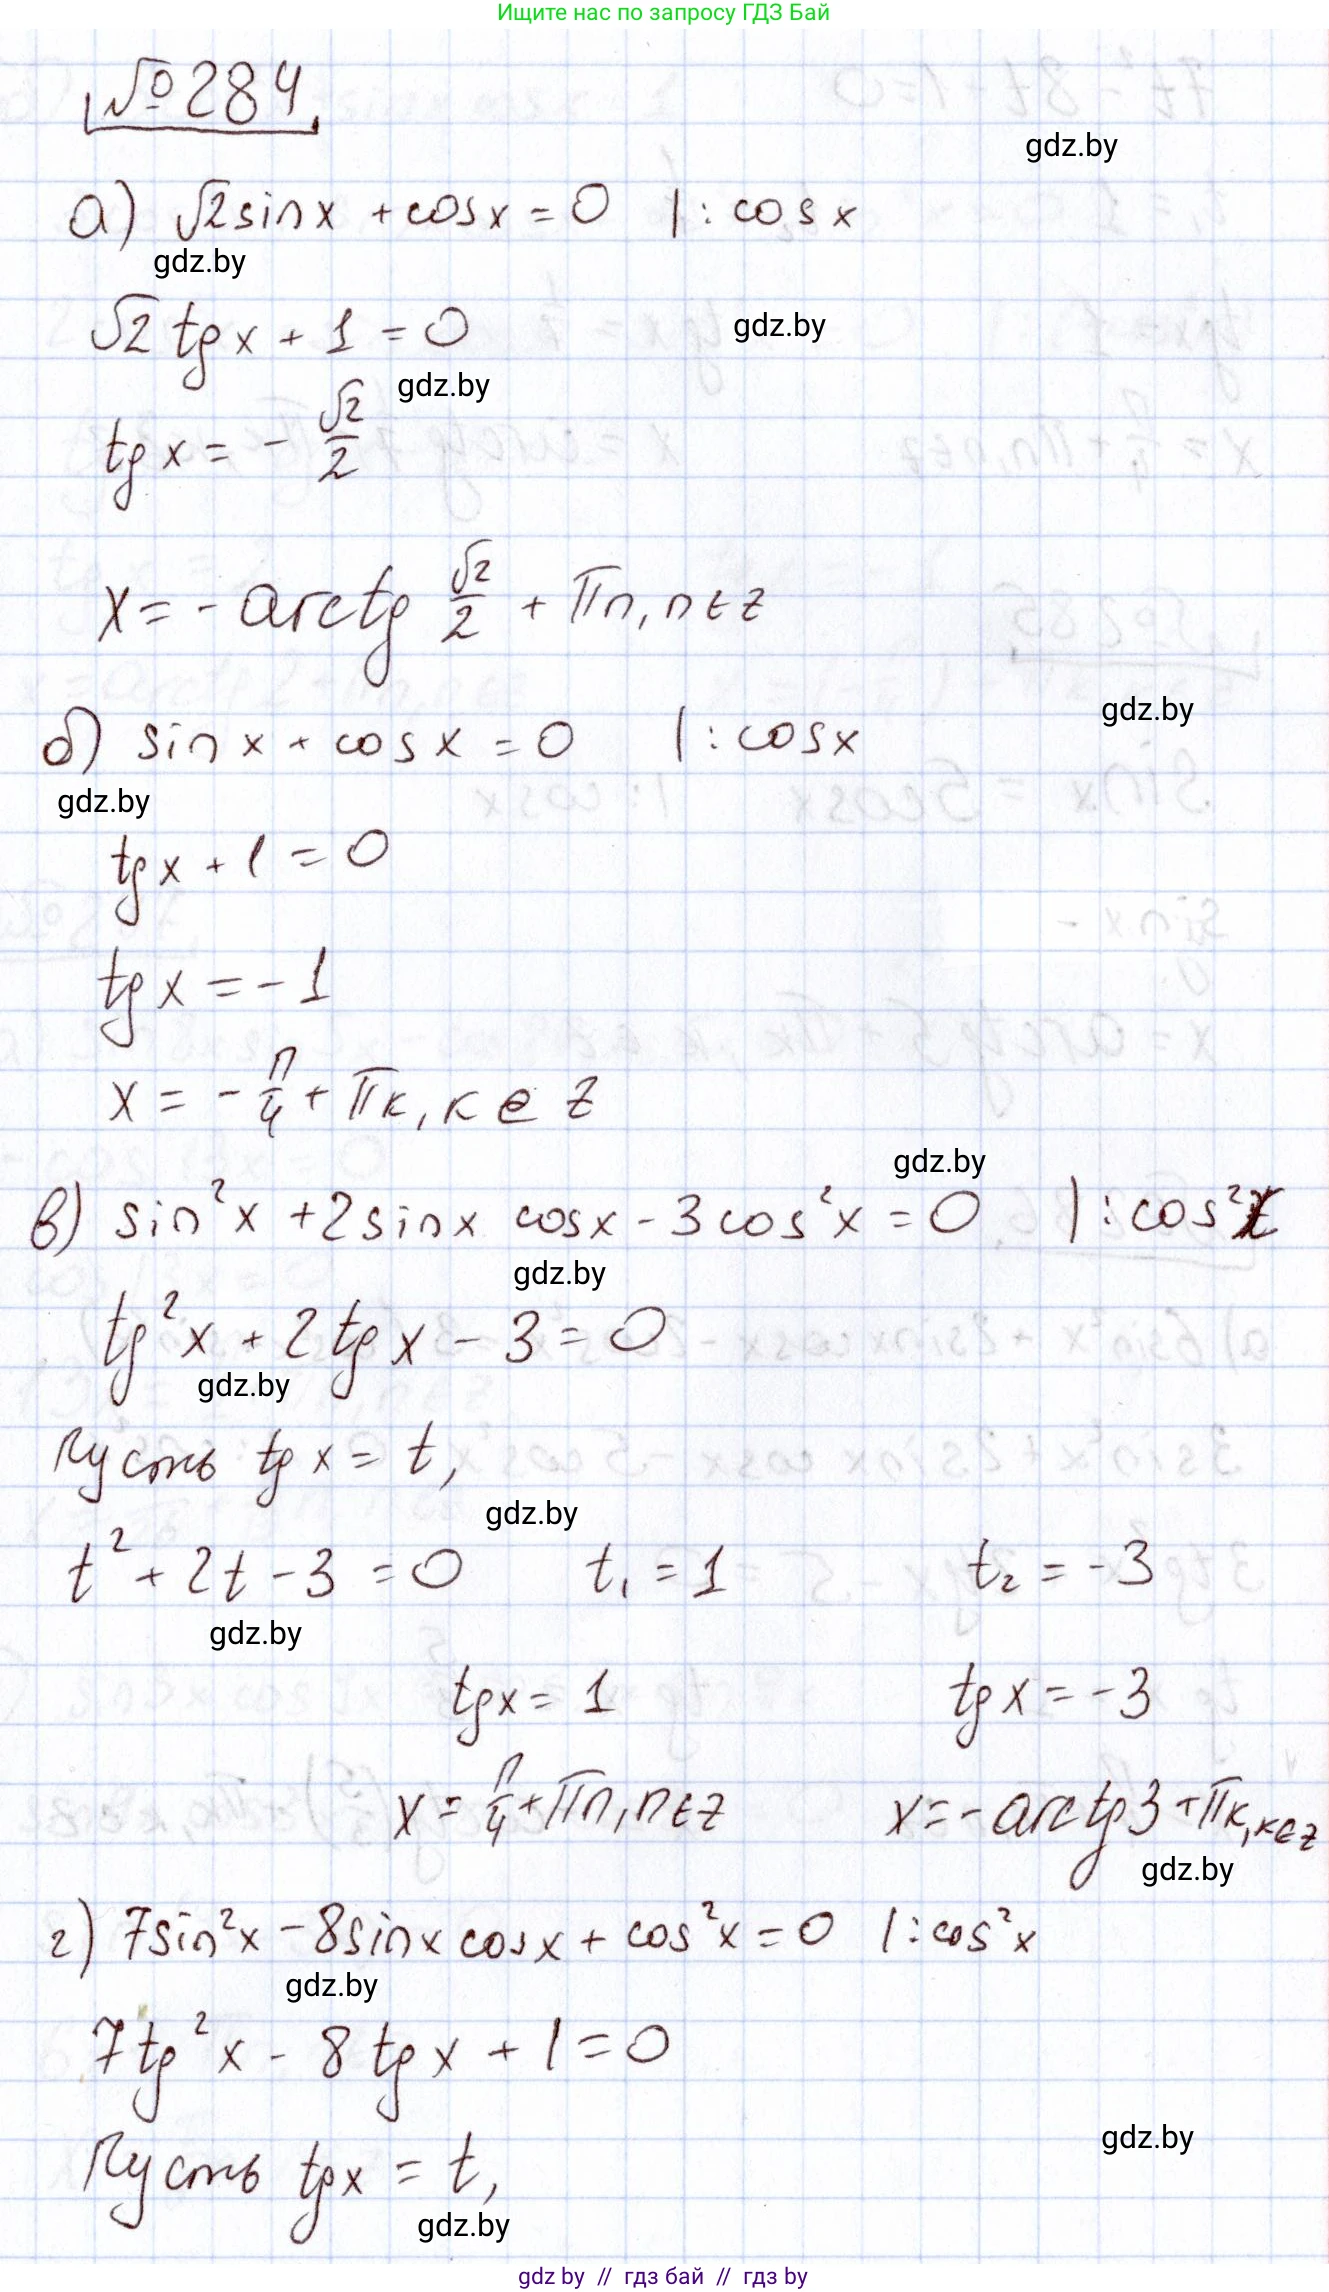 Ищите нас по запросу ГДЗ Бай
№284
gdz.by
а) √2 sin x + cos x = 0 | : cos x
gdz.by
√2 tg x + 1 = 0
gdz.by
gdz.by
tg x = - √2/2
x = - arctg √2/2 + πn, n ∈ z
gdz.by
б) sin x + cos x = 0 | : cos x
gdz.by
tg x + 1 = 0
tg x = - 1
x = - π/4 + πк, к ∈ z
gdz.by
в) sin²x + 2 sin x cos x - 3 cos²x = 0 | : cos²x
gdz.by
tg²x + 2 tg x - 3 = 0
gdz.by
Пусть tg x = t,
gdz.by
t² + 2t - 3 = 0 t₁ = 1 t₂ = -3
gdz.by
tg x = 1 tg x = -3
x = π/4 + πn, n ∈ z x = - arctg 3 + πк, к ∈ z
gdz.by
г) 7 sin²x - 8 sin x cos x + cos²x = 0 | : cos²x
gdz.by
7 tg²x - 8 tg x + 1 = 0
gdz.by
Пусть tg x = t,
gdz.by
gdz by // гдз бай // гдз by